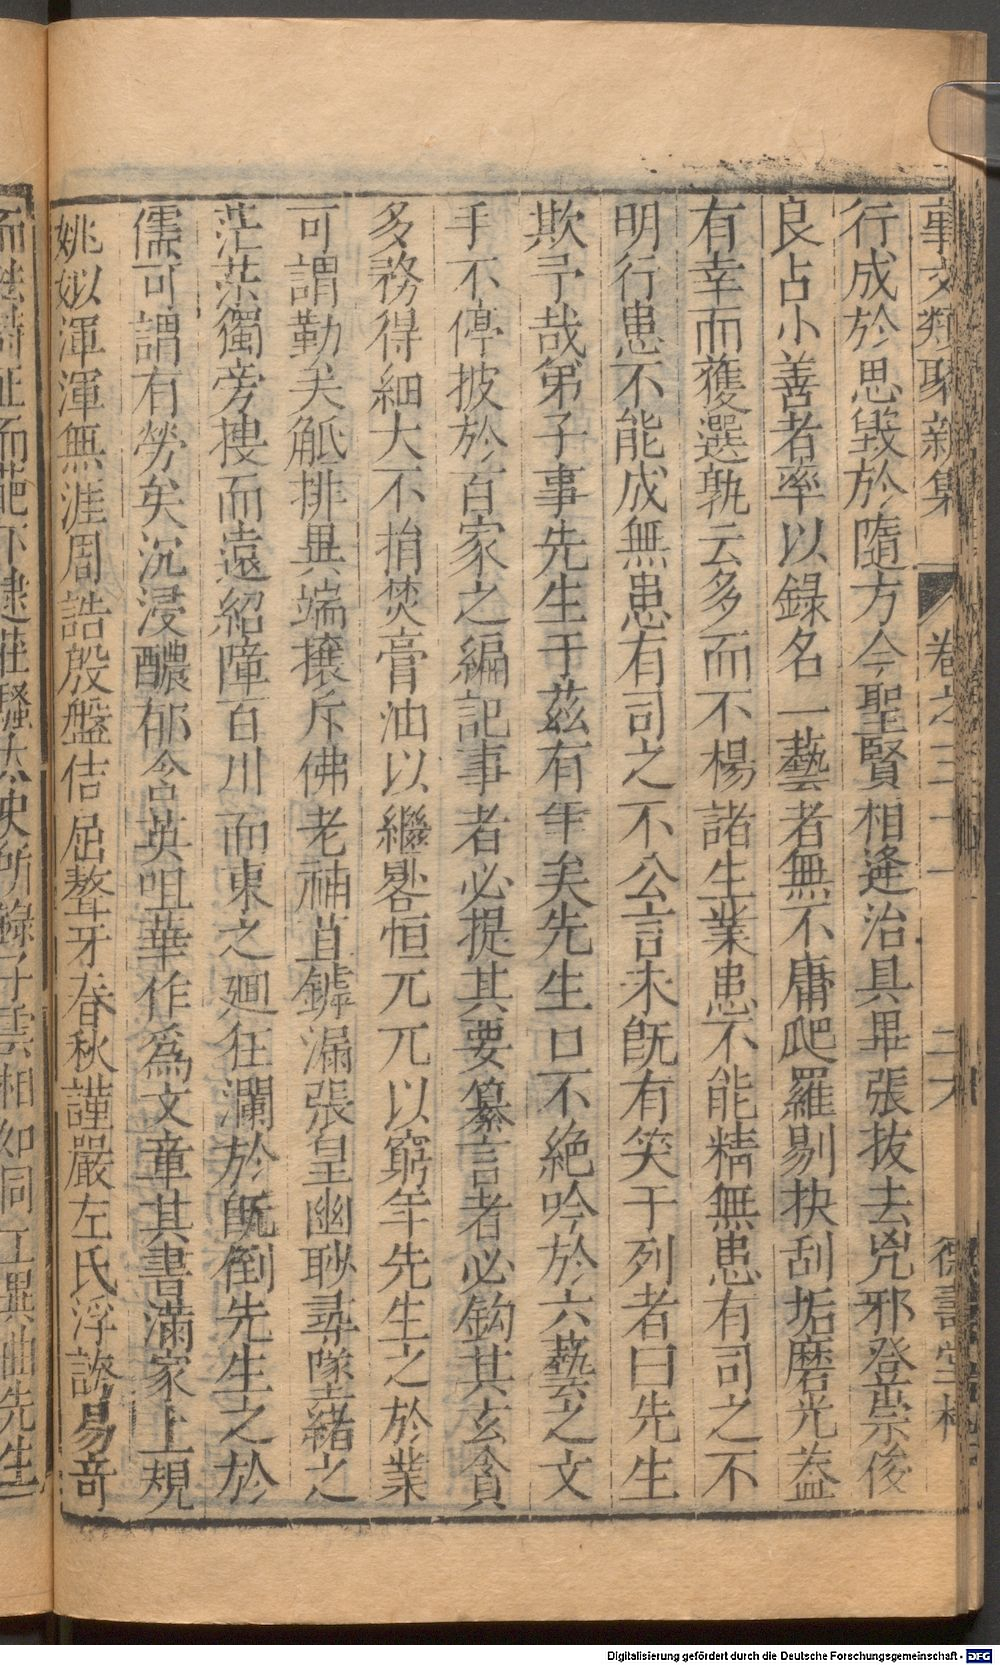 事文類聚新集 卷之三十一 二六 德壽堂梓
行成於思毀於隨方今聖賢相逢治具畢張拔去兇邪登崇俊
良占小善者率以錄名一藝者無不庸爬羅剔抉刮垢磨光葢
有幸而獲選孰云多而不楊諸生業患不能精無患有司之不
明行患不能成無患有司之不公言未旣有笑于列者曰先生
欺予哉弟子事先生于茲有年矣先生口不絕吟於六藝之文
手不停披於百家之編記事者必提其要纂言者必鈎其玄貪
多務得細大不捐焚膏油以繼晷恒兀兀以窮年先生之於業
可謂勤矣觝排異端攘斥佛老補苴罅漏張皇幽眇尋墜緒之
茫茫獨旁搜而遠紹障百川而東之廻狂瀾於旣倒先生之於
儒可謂有勞矣沉浸醲郁含英咀華作爲文章其書滿家上規
姚姒渾渾無涯周誥殷盤佶屈聱牙春秋謹嚴左氏浮誇易奇
而法詩正而葩下逮莊騷太史所錄子雲相如同工異曲先生
Digitalisierung gefördert durch die Deutsche Forschungsgemeinschaft - DFG